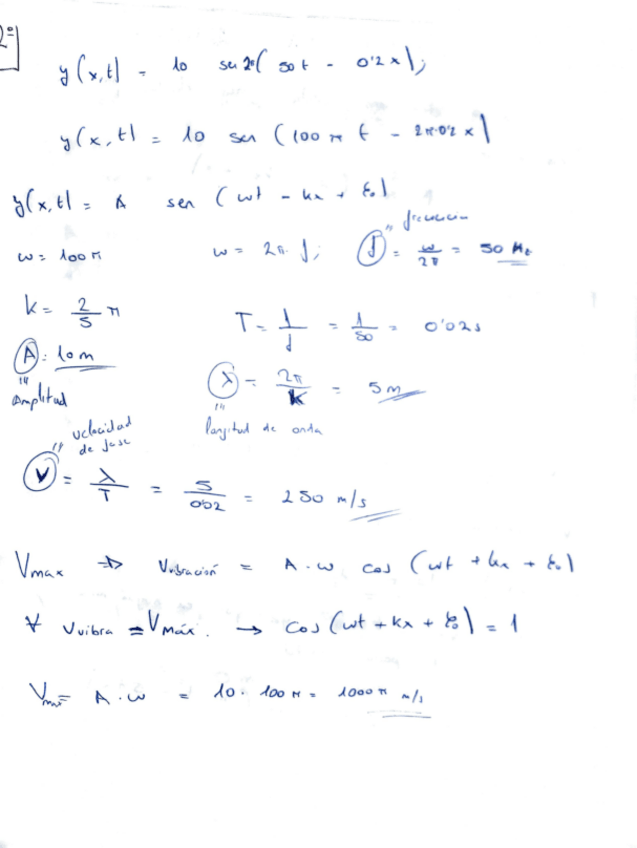 2º
y(x,t) = 10 sen 2π( 50t - 0'2x);
y(x,t) = 10 sen (100π t - 2π·0'2 x)
y(x,t) = A sen (ωt - kx + ξ₀)
ω = 100π ω = 2π·f; f = ω/2π = 50 Hz
" frecuencia
k = 2/5 π T = 1/f = 1/50 = 0'02s
A = 10m λ = 2π/k = 5m
" Amplitud " longitud de onda
" velocidad de fase
V = λ/T = 5/0'02 = 250 m/s
Vmax ⇒ Vvibración = A·ω cos (ωt + kx + ξ₀)
∀ Vvibra = Vmáx. → cos(ωt + kx + ξ₀) = 1
Vmax = A·ω = 10·100π = 1000π m/s